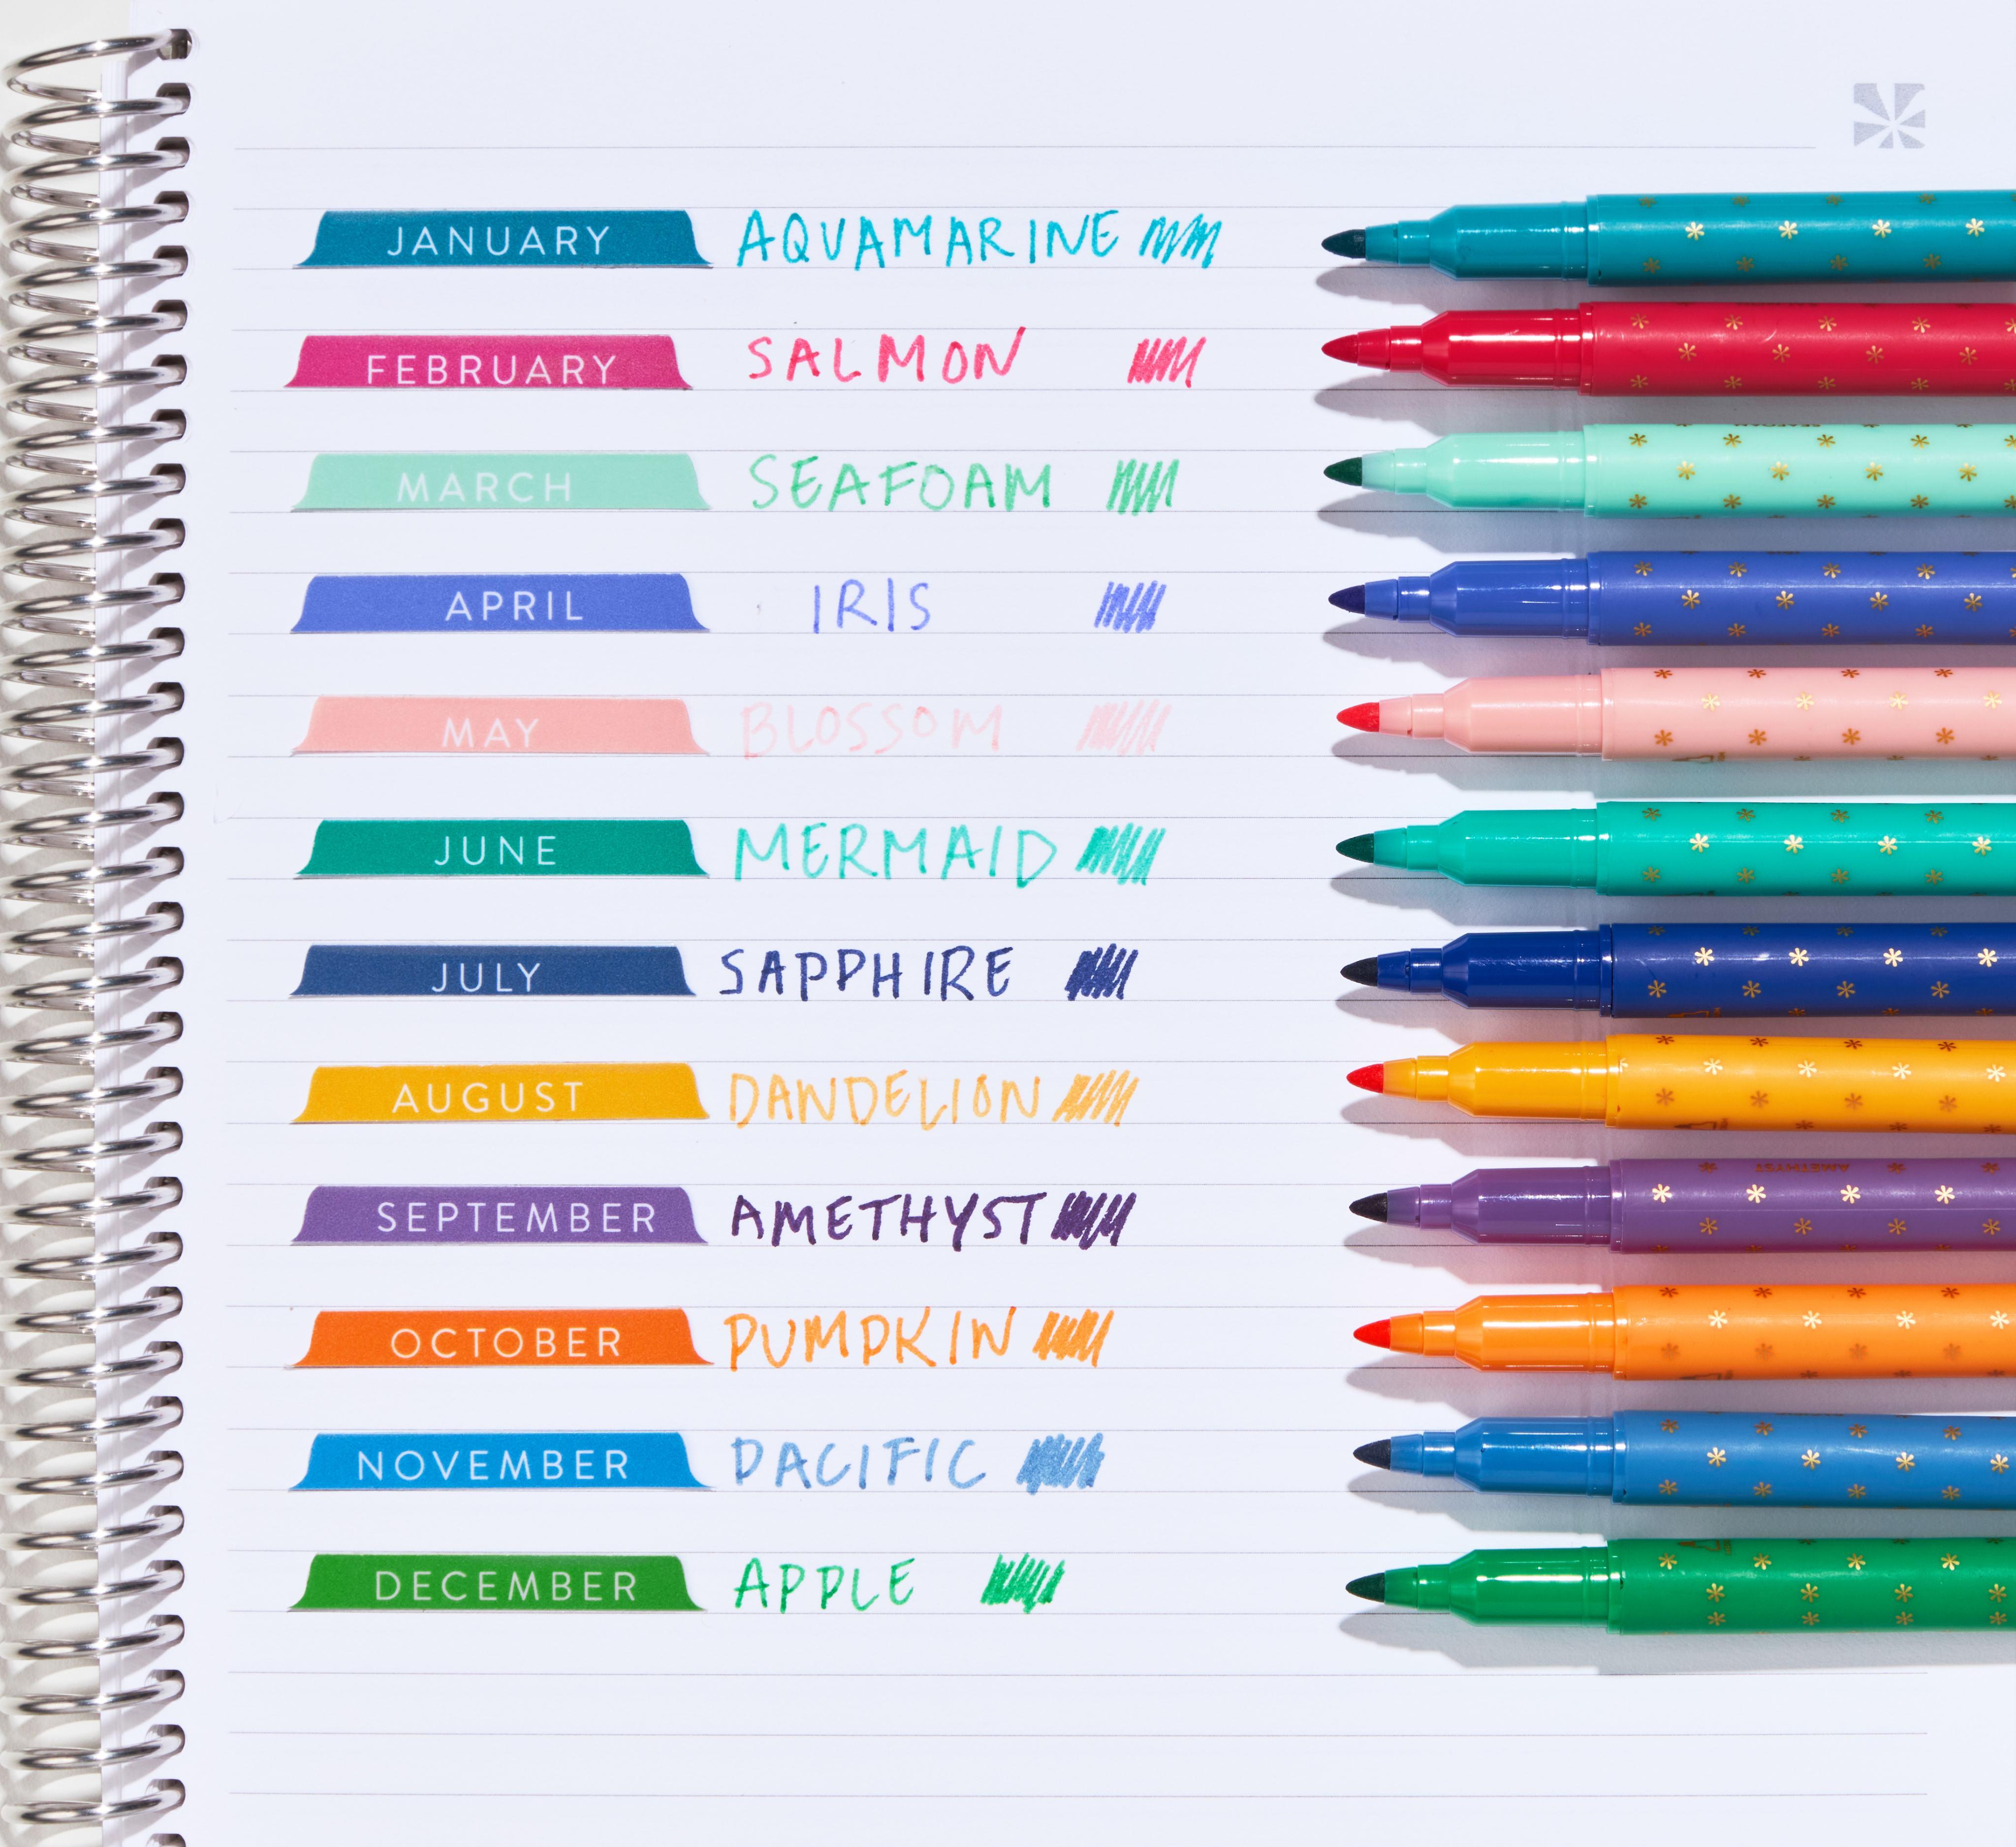 JANUARY AQUAMARINE
FEBRUARY SALMON
MARCH SEAFOAM
APRIL IRIS
MAY BLOSSOM
JUNE MERMAID
JULY SAPPHIRE
AUGUST DANDELION
SEPTEMBER AMETHYST
AMETHYST
OCTOBER PUMPKIN
NOVEMBER PACIFIC
DECEMBER APPLE